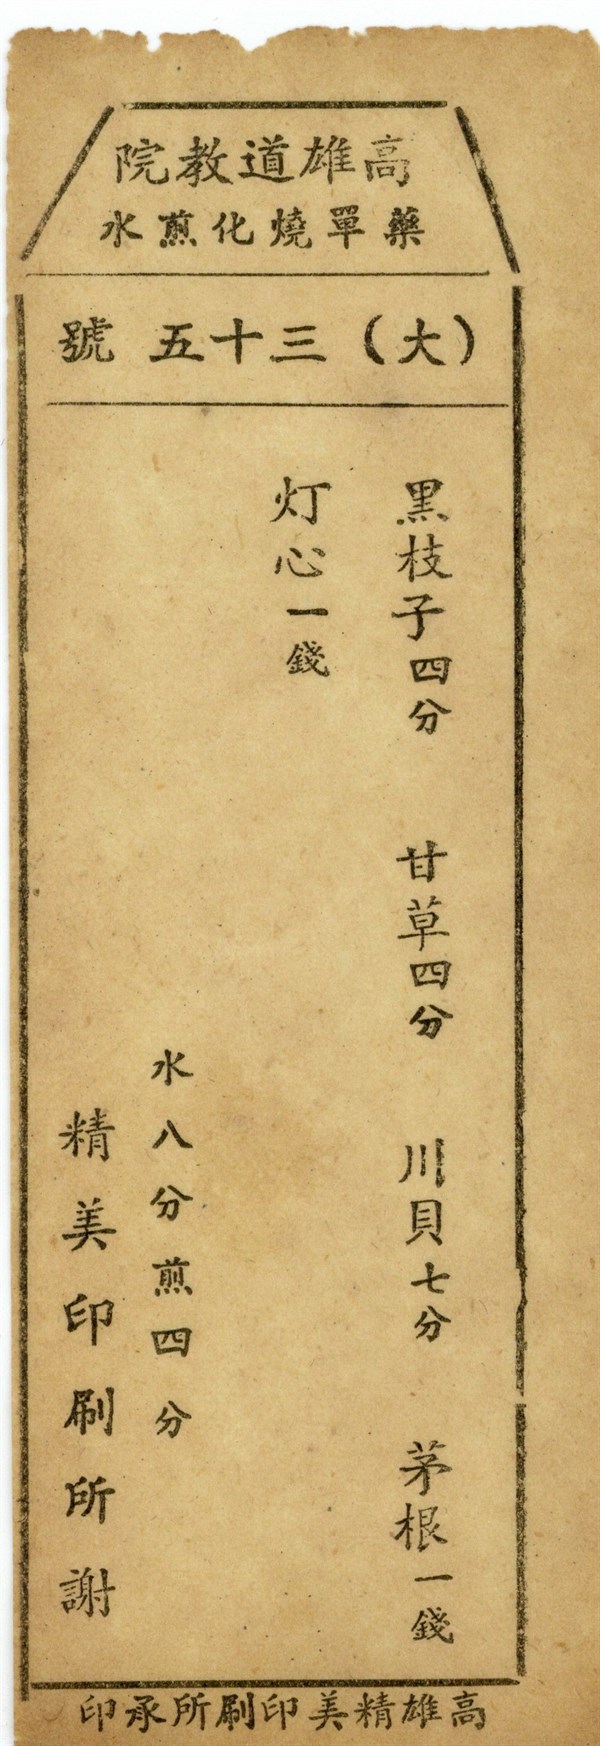 高雄道教院
藥單燒化煎水
（大）三十五 號
黑枝子四分 甘草四分 川貝七分 茅根一錢
灯心一錢
水八分煎四分
精美印刷所謝
高雄精美印刷所承印